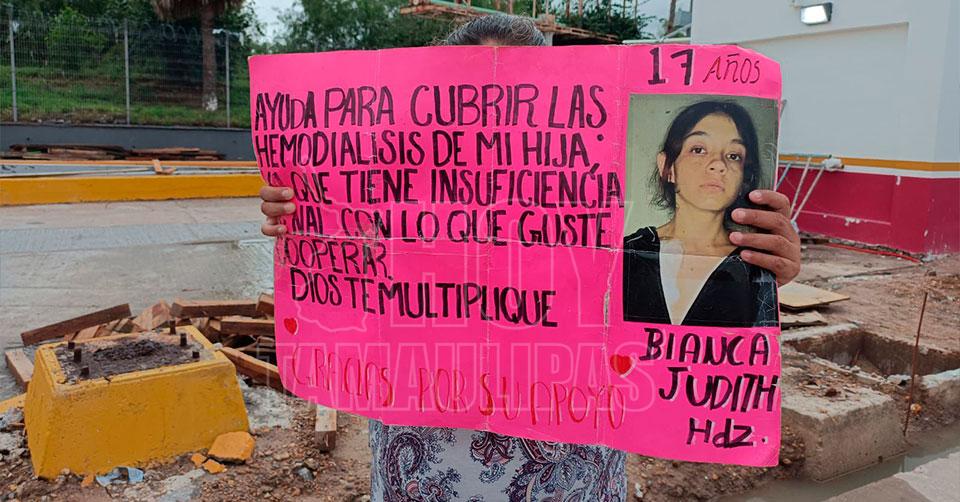 17 AÑOS
AYUDA PARA CUBRIR LAS
HEMODIALISIS DE MI HIJA;
QUE TIENE INSUFICIENCIA
CON LO QUE GUSTE
COOPERAR.
DIOS TE MULTIPLIQUE
GRACIAS POR SU APOYO
BIANCA
JUDITH
Hdz.
HOY
TAMAULIPAS